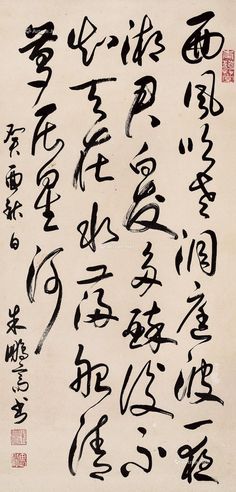 西風吹老洞庭波一夜
湘君白髮多醉後不
知天在水滿船清
夢压星河
癸酉秋日 朱鵬高书